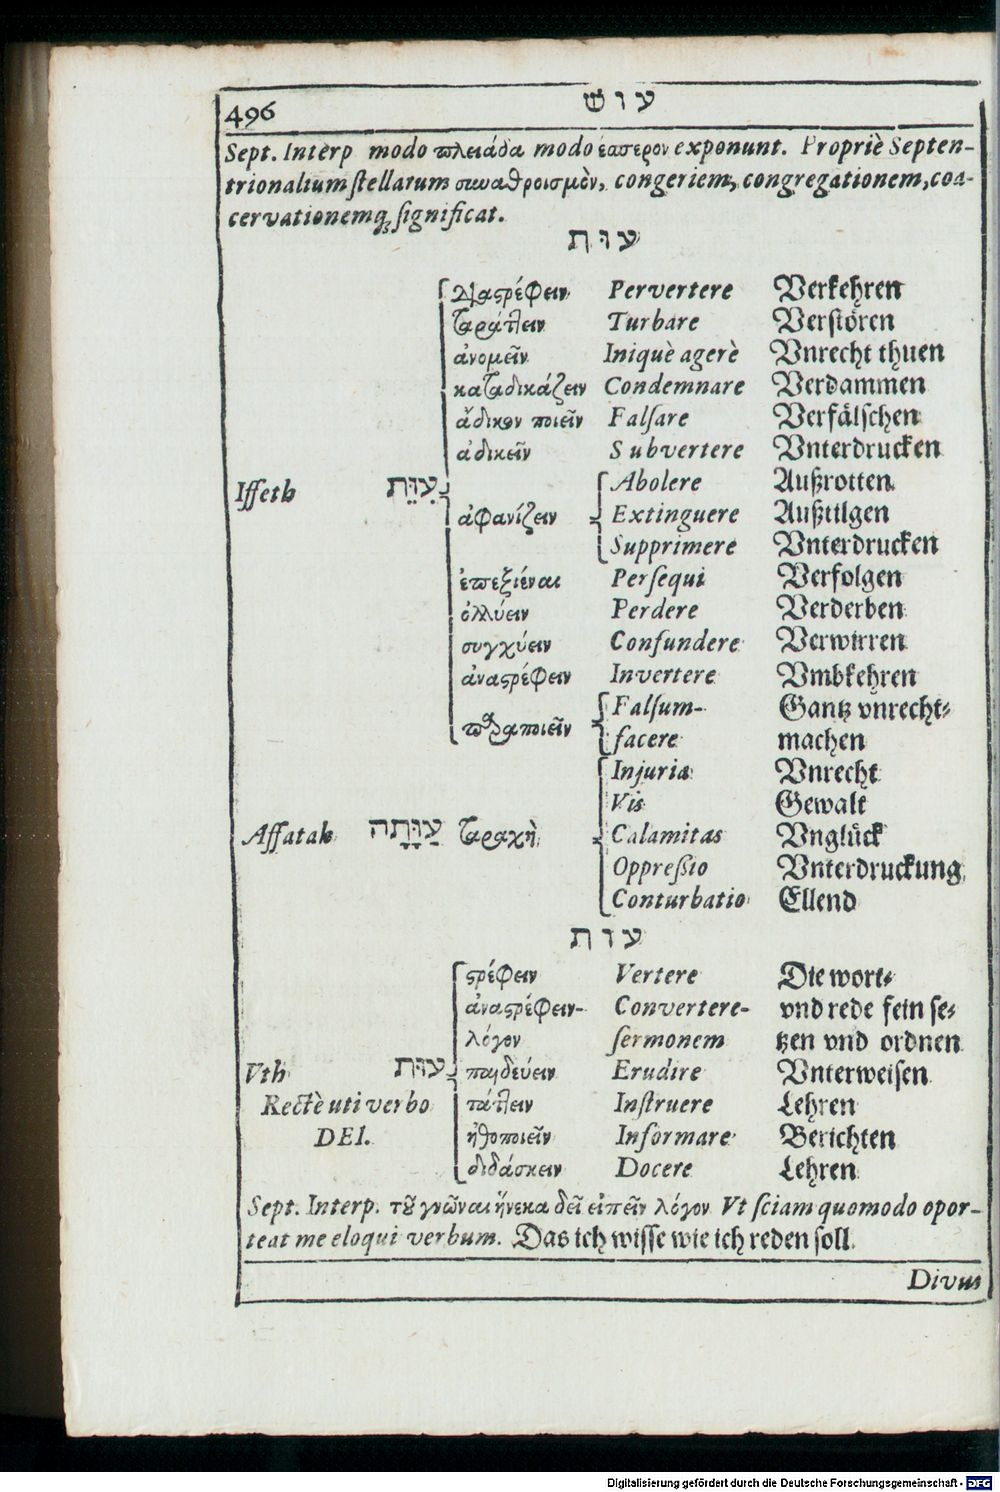 496
עוש
Sept. Interp modo πλειάδα modo ἑασερον exponunt. Propriè Septen-
trionalium stellarum συναθροισμὸν, congeriem, congregationem, coa-
cervationemq; significat.
עוּת
διαστρέφειν Pervertere Verkehren
ταράττειν Turbare Verstören
ἀνομεῖν Iniquè agerè Vnrecht thuen
καταδικάζειν Condemnare Verdammen
ἄδικον ποιεῖν Falsare Verfälschen
ἀδικεῖν Subvertere Vnterdrucken
Abolere Außrotten
Isseth עִוֵּת
ἀφανίζειν Extinguere Außtilgen
Supprimere Vnterdrucken
ἐπεξιέναι Persequi Verfolgen
ὀλλύειν Perdere Verderben
συγχύειν Confundere Verwirren
ἀναστρέφειν Invertere Vmbkehren
Falsum- Gantz vnrecht-
facere machen
Injuria Vnrecht
Vis Gewalt
Assatah עַוָּתָה ταραχὴ Calamitas Vnglück
Oppressio Vnterdruckung
Conturbatio Ellend
עות
στρέφειν Vertere Die wort-
ἀναστρέφειν- Convertere- vnd rede fein se-
λόγον sermonem tzen vnd ordnen
Vth עוּת παιδεύειν Erudire Vnterweisen
Rectè uti verbo τάττειν Instruere Lehren
DEI. ἠθοποιεῖν Informare Berichten
διδάσκειν Docere Lehren
Sept. Interp. τοῦ γνῶναι ἥνεκα δεῖ εἰπεῖν λόγον Vt sciam quomodo opor-
teat me eloqui verbum. Das ich wisse wie ich reden soll.
Divus
Digitalisierung gefördert durch die Deutsche Forschungsgemeinschaft - DFG